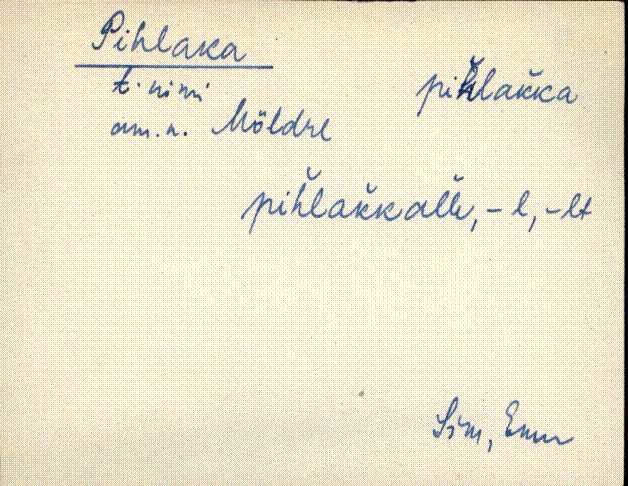 Pihlaka
t. nimi
am. n. Möldre
pih̆lak̆ka
pih̆lak̆kal̆le, -l, -lt
Sim, Emu